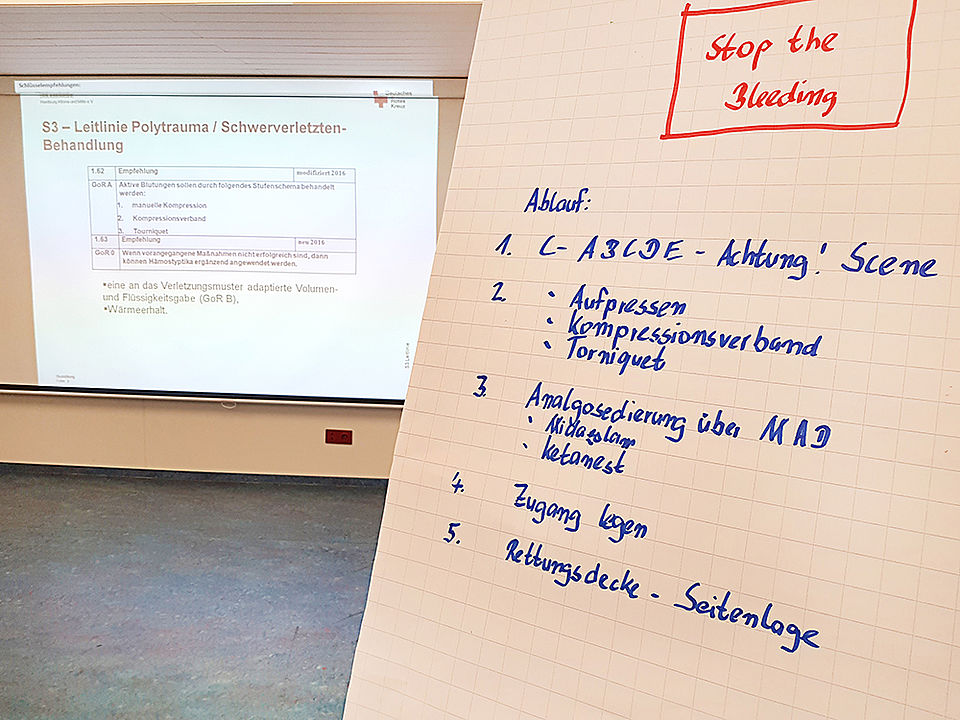 Schlüsselempfehlungen:
Deutsches
Rotes
Kreuz
S3 – Leitlinie Polytrauma / Schwerverletzten-
Behandlung
1.62 Empfehlung modifiziert 2016
GoR A Aktive Blutungen sollen durch folgendes Stufenschema behandelt
werden:
1. manuelle Kompression
2. Kompressionsverband
3. Tourniquet
1.63 Empfehlung neu 2016
GoR 0 Wenn vorangegangene Maßnahmen nicht erfolgreich sind, dann
können Hämostyptika ergänzend angewendet werden.
▪eine an das Verletzungsmuster adaptierte Volumen-
und Flüssigkeitsgabe (GoR B),
▪Wärmeerhalt.
Stop the
Bleeding
Ablauf:
1. C - ABCDE - Achtung! Scene
2. • Aufpressen
• Kompressionsverband
• Torniquet
3. Analgosedierung über MAD
• Midazolam
• Ketanest
4. Zugang legen
5. Rettungsdecke - Seitenlage